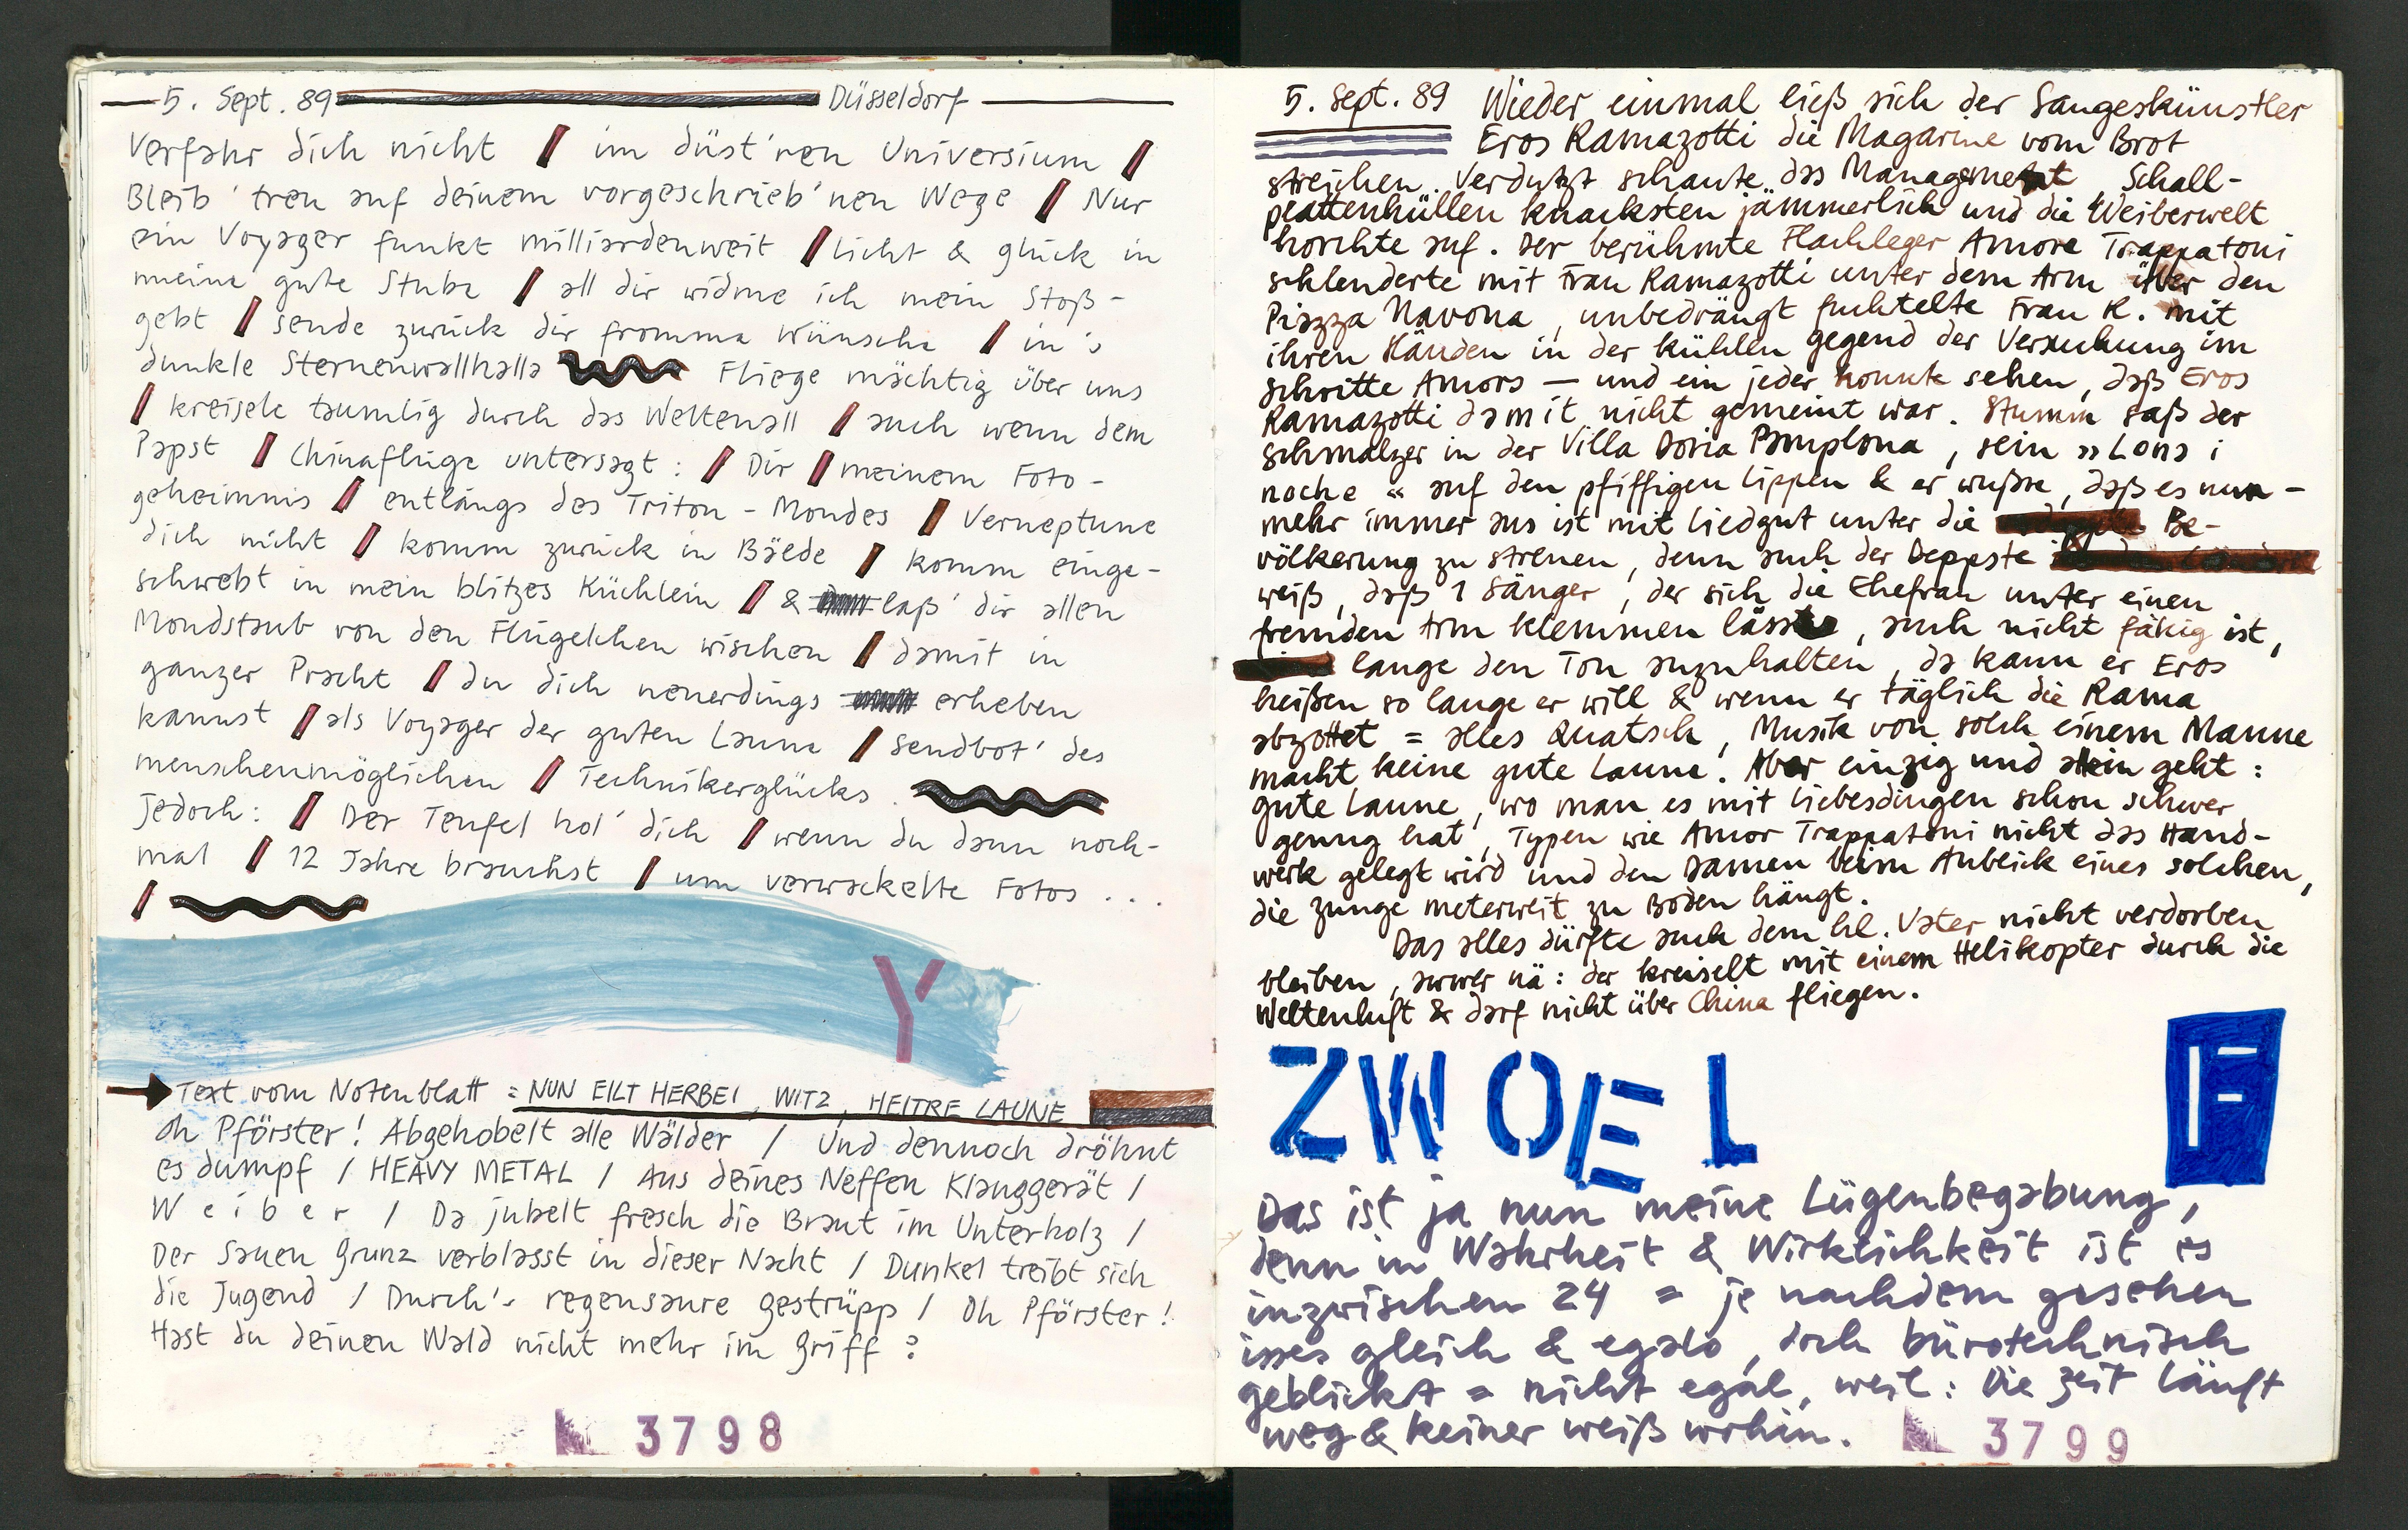 5. Sept. 89 Düsseldorf
Verfahr dich nicht / im düst'ren Universium /
Bleib' treu auf deinem vorgeschrieb'nen Wege / Nur
ein Voyager funkt milliardenweit / Licht & Glück in
meine gute Stube / all dir widme ich mein Stoß-
gebt / sende zurück dir fromme Wünsche / in's
dunkle Sternenwallhalla Fliege mächtig über uns
/ kreisele taumlig durch das Weltenall / auch wenn dem
Papst / Chinaflüge untersagt : / Dir / meinem Foto-
geheimnis / entlängs des Triton - Mondes / Verneptune
dich nicht / komm zurück in Bälde / komm einge-
schwebt in mein blitzes Küchlein / & laß' dir allen
Mondstaub von den Flügelchen wischen / damit in
ganzer Pracht / du dich neuerdings erheben
kannst / als Voyager der guten Laune / Sendbot' des
menschenmöglichen / Technikerglücks.
Jedoch: / Der Teufel hol' dich / wenn du dann noch-
mal / 12 Jahre brauchst / um verwackelte Fotos ...
/
Y
Text vom Notenblatt = NUN EILT HERBEI, WITZ, HEITRE LAUNE
Oh Pförster! Abgehobelt alle Wälder / Und dennoch dröhnt
es dumpf / HEAVY METAL / Aus deines Neffen Klanggerät /
Weiber / Da jubelt fresch die Braut im Unterholz /
Der Sauen Grunz verblasst in dieser Nacht / Dunkel treibt sich
die Jugend / Durch's regensaure Gestrüpp / Oh Pförster!
Hast du deinen Wald nicht mehr im Griff ?
3798
5. Sept. 89 Wieder einmal ließ sich der Sangeskünstler
Eros Ramazotti die Magarine vom Brot
streichen. Verdutzt schaute das Management, Schall-
plattenhüllen knacksten jämmerlich und die Weiberwelt
horchte auf. Der berühmte Flachleger Amore Trappatoni
schlenderte mit Frau Ramazotti unter dem Arm über den
Piazza Navona, unbedrängt fuchtelte Frau R. mit
ihren Händen in der kühlen Gegend der Versuchung im
Schritte Amors – und ein jeder konnte sehen, daß Eros
Ramazotti damit nicht gemeint war. Stumm saß der
Schmalzer in der Villa Doria Pamplona, sein »Lona i
noche« auf den pfiffigen Lippen & er wußte, daß es nun-
mehr immer aus ist mit Liedgut unter die Be-
völkerung zu streuen, denn auch der Deppste
weiß, daß 1 Sänger, der sich die Ehefrau unter einen
fremden Arm klemmen lässt, auch nicht fähig ist,
lange den Ton anzuhalten, da kann er Eros
heißen so lange er will & wenn er täglich die Rama
abzottet = alles Quatsch, Musik von solch einem Manne
macht keine gute Laune. Aber einzig und allein geht:
gute Laune, wo man es mit Liebesdingen schon schwer
genug hat, Typen wie Amor Trappatoni nicht das Hand-
werk gelegt wird und den Damen beim Anblick eines solchen,
die Zunge meterweit zu Boden hängt.
Das alles dürfte auch dem hl. Vater nicht verdorben
bleiben, awwer nä: der kreiselt mit einem Helikopter durch die
Weltenluft & darf nicht über China fliegen.
ZWOEL F
Das ist ja nun meine Lügenbegabung,
denn in Wahrheit & Wirklichkeit ist es
inzwischen 24 = je nachdem gesehen
isses gleich & egalo, doch bürotechnisch
geblickt = nicht egal, weil: Die Zeit läuft
weg & keiner weiß wohin.
3799